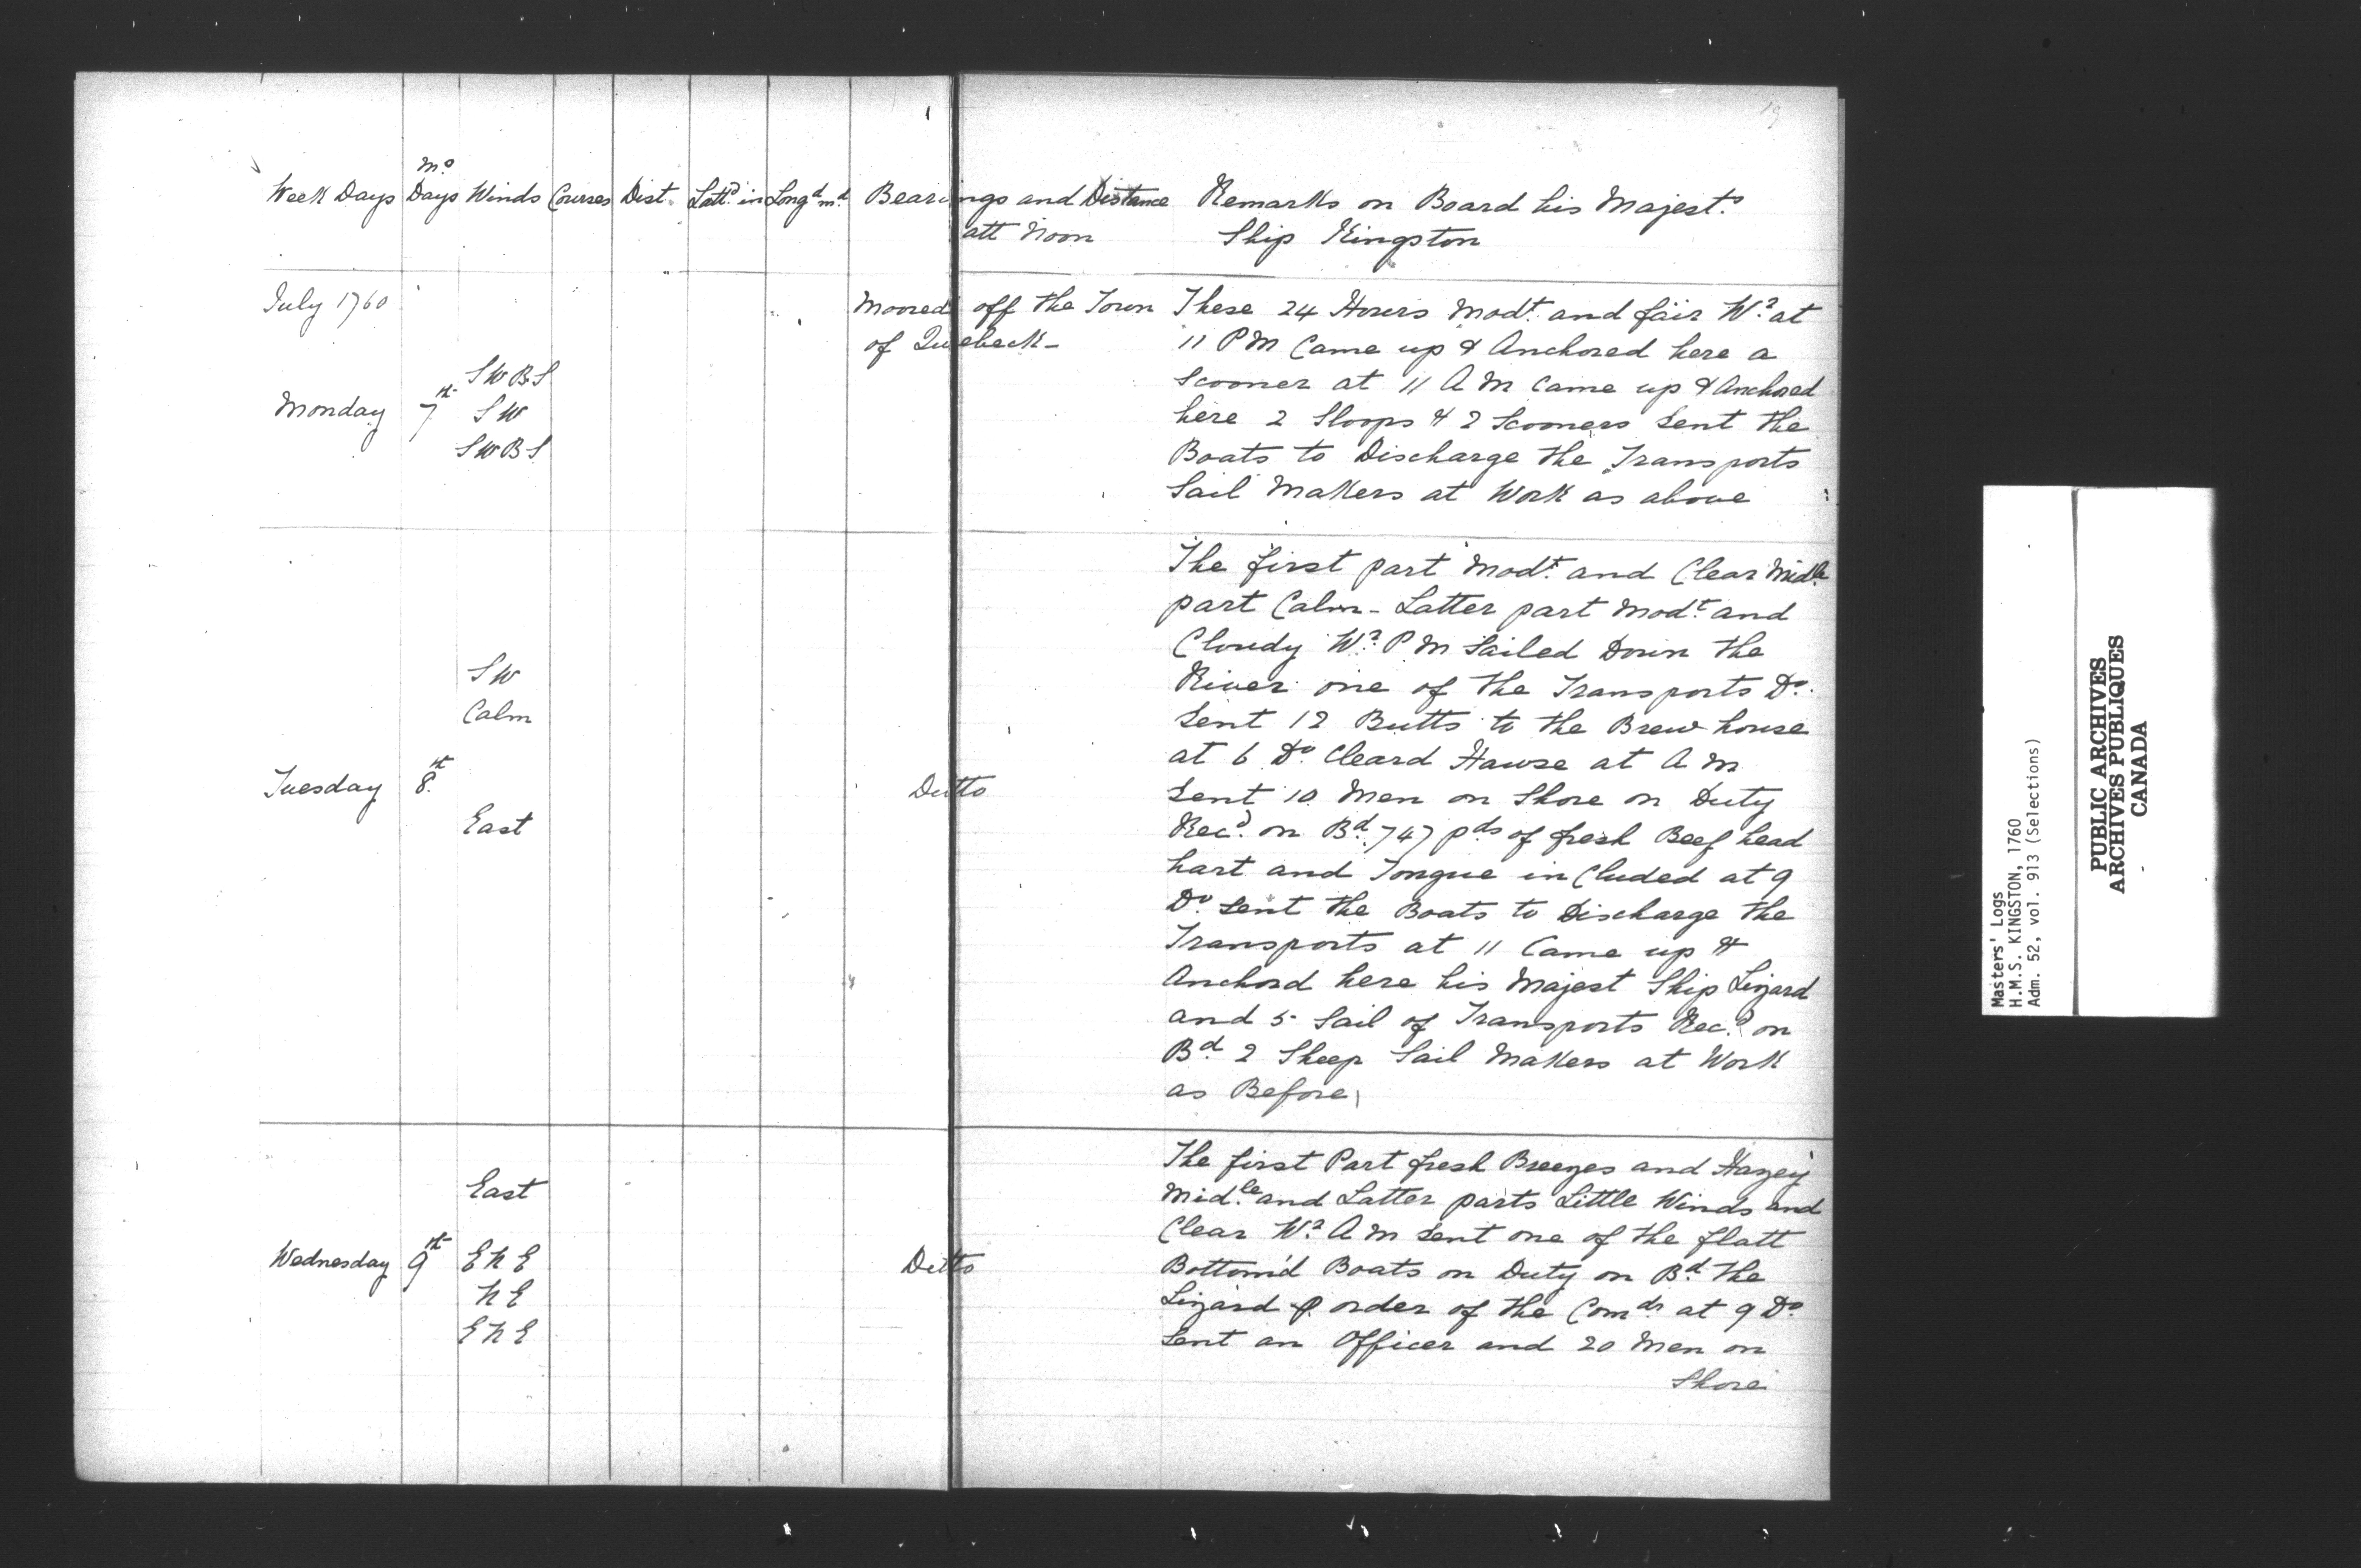 19
Week Days Mo Days Winds Courses Dist. Lattd in Longd md Bearings and Distance att Noon
Remarks on Board his Majests
Ship Kingston
July 1760
Monday 7th
SWBS
SW
SWBS
Moored off the Town
of Quebeck-
These 24 Hours Modt. and fair Wr. at
11 PM Came up & Anchored here a
Scooner at 11 AM Came up & Anchored
here 2 Sloops & 2 Scooners Sent the
Boats to Discharge the Transports
Sail Makers at Work as above
Tuesday 8th
SW
Calm
East
Ditto
The first part Modt. and Clear Midle
part Calm - Latter part Modt. and
Cloudy Wr. PM Sailed Down the
River one of the Transports Do.
Sent 12 Butts to the Brew house
at 6 Do. Cleard Hawse at AM
Sent 10 Men on Shore on Duty
Recd. on Bd. 747 pds of fresh Beef head
hart and Tongue in Cluded at 9
Do. Sent the Boats to Discharge the
Transports at 11 Came up &
Anchord here his Majest Ship Lizard
and 5 Sail of Transports Recd. on
Bd. 2 Sheep Sail Makers at Work
as Before
Wednesday 9th
East
ENE
NE
ENE
Ditto
The first Part fresh Breezes and Hazey
Midle. and Latter parts Little Winds and
Clear Wr. AM Sent one of the flatt
Bottom'd Boats on Duty on Bd. the
Lizard P order of the Comdr. at 9 Do.
Sent an Officer and 20 Men on
Shore
Masters' Logs
H.M.S. KINGSTON, 1760
Adm. 52, vol. 913 (Selections)
PUBLIC ARCHIVES
ARCHIVES PUBLIQUES
CANADA